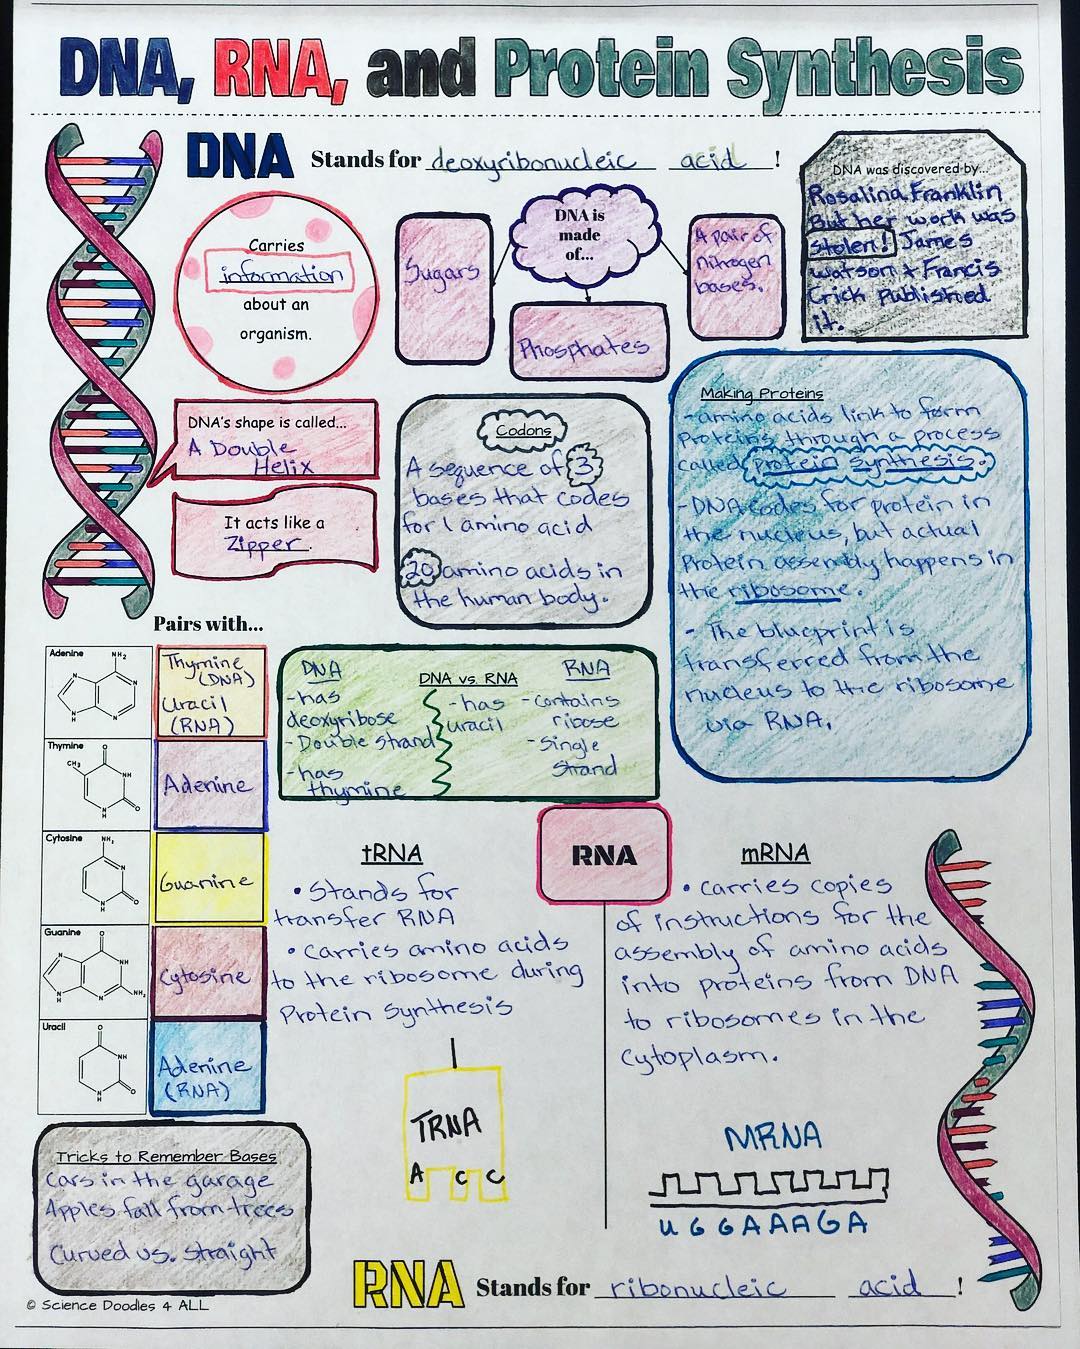 DNA, RNA, and Protein Synthesis
DNA Stands for deoxyribonucleic acid!
Carries
information
about an
organism.
DNA is
made
of...
Sugars
Phosphates
A pair of
nitrogen
bases.
DNA was discovered by...
Rosalina Franklin
But her work was
stolen! James
Watson + Francis
Crick published
it.
DNA's shape is called...
A Double
Helix
It acts like a
Zipper.
Codons
A sequence of 3
bases that codes
for 1 amino acid
20 amino acids in
the human body.
Making Proteins
-amino acids link to form
Proteins through a process
called protein synthesis.
-DNA codes for protein in
the nucleus, but actual
Protein assembly happens in
the ribosome.
- The blueprint is
transferred from the
nucleus to the ribosome
via RNA.
Pairs with...
Adenine
NH₂
N
N
N
N
H
Thymine
(DNA)
Uracil
(RNA)
Thymine
O
CH₃
NH
N
H
O
Adenine
Cytosine
NH₂
N
N
H
O
Guanine
Guanine
O
N
NH
N
H
N
NH₂
Cytosine
Uracil
O
NH
N
H
O
Adenine
(RNA)
DNA vs. RNA
DNA
-has
deoxyribose
-Double strand
-has
thymine
RNA
-has
uracil
-contains
ribose
-Single
strand
RNA
tRNA
• Stands for
transfer RNA
• Carries amino acids
to the ribosome during
Protein Synthesis
TRNA
A C C
mRNA
• Carries copies
of instructions for the
assembly of amino acids
into proteins from DNA
to ribosomes in the
cytoplasm.
MRNA
U G G A A A G A
Tricks to Remember Bases
Cars in the garage
Apples fall from trees
Curved vs. Straight
RNA Stands for ribonucleic acid!
© Science Doodles 4 ALL